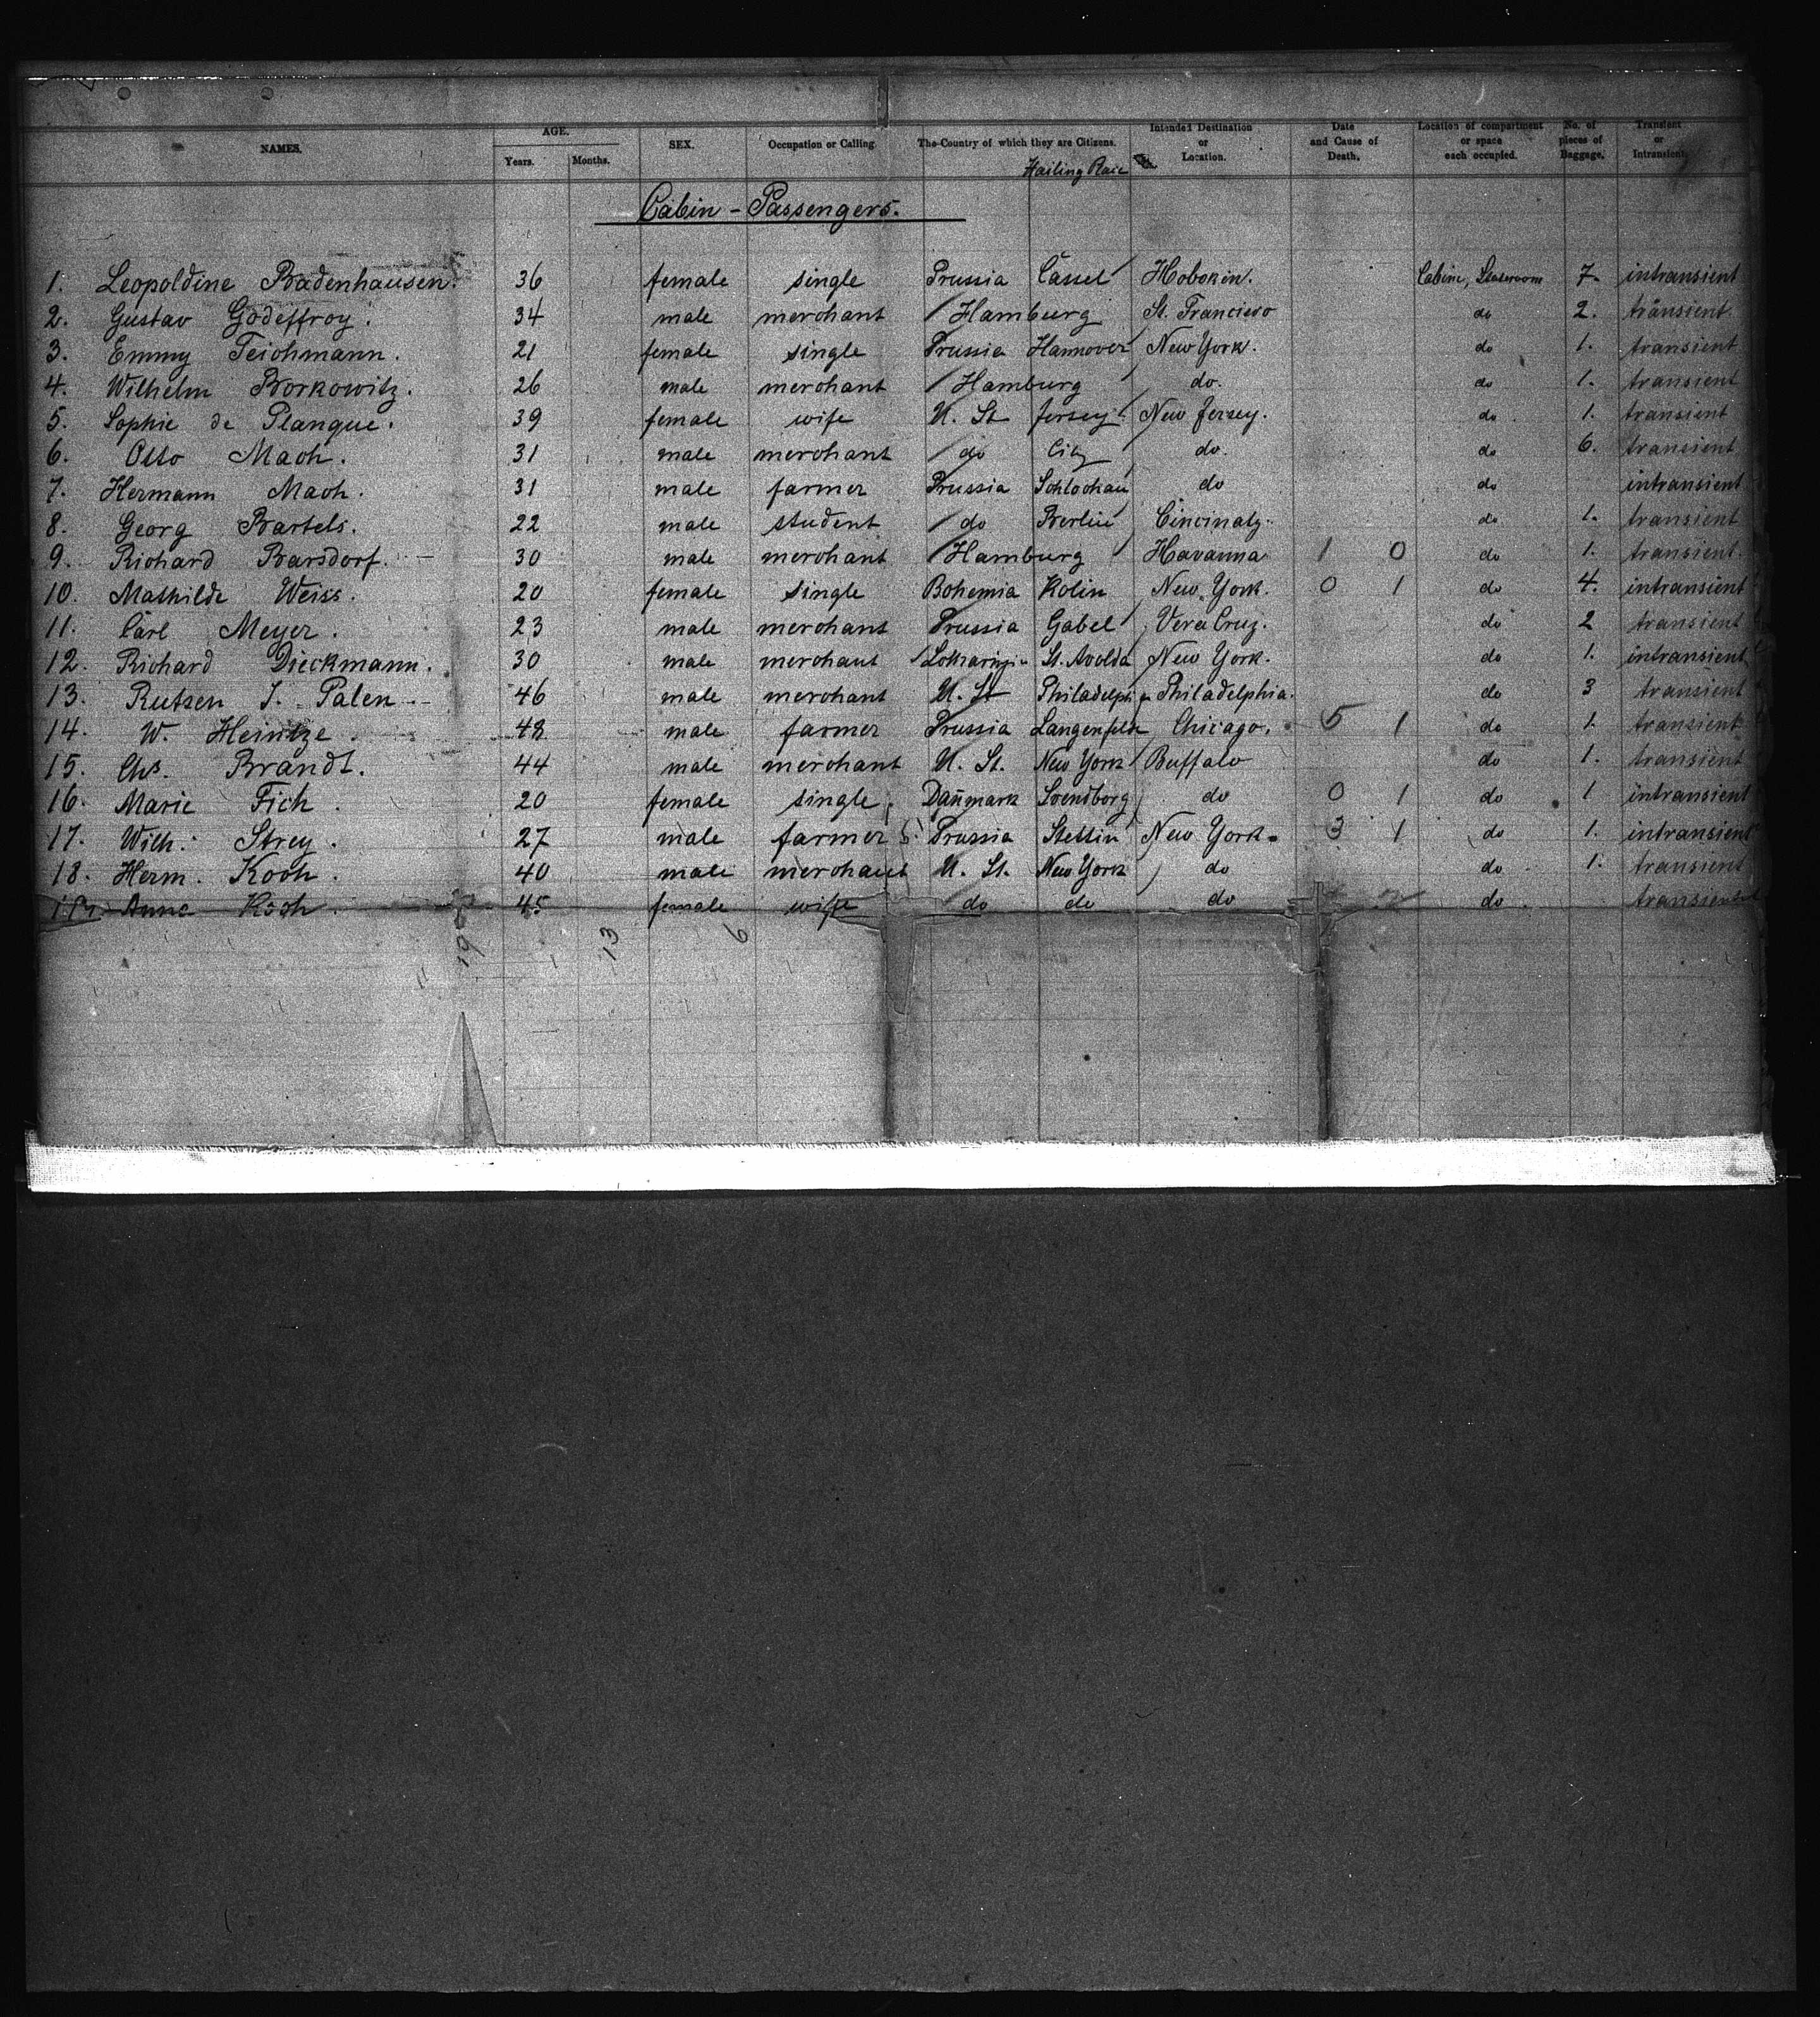 NAMES. AGE. Years. Months. SEX. Occupation or Calling. The Country of which they are Citizens. Intended Destination or Location. Date and Cause of Death. Location of compartment or space each occupied. No. of pieces of Baggage. Transient or Intransient
Hailing
Cabin - Passengers.
1. Leopoldine Badenhausen. 36 female single Prussia Cassel Hoboken. Cabin, Stateroom 7. intransient
2. Gustav Godeffroy. 34 male merchant Hamburg St. Francisco do 2. transient.
3. Emmy Teichmann. 21 female single Prussia Hannover New York. do 1. transient
4. Wilhelm Borkowitz. 26 male merchant Hamburg do. do 1. transient
5. Sophie de Planque. 39 female wife U. St Jersey New Jersey. do 1. transient
6. Otto Mach. 31 male merchant do City do. do 6. transient
7. Hermann Mach. 31 male farmer Prussia Schlochau do do intransient
8. Georg Bartels. 22 male student do Berlin Cincinaty. do 1. transient
9. Richard Barsdorf. 30 male merchant Hamburg Havanna 1 0 do 1. transient.
10. Mathilde Weiss. 20 female single Bohemia Kolin New York. 0 1 do 4. intransient
11. Carl Meyer. 23 male merchant Prussia Gabel Vera Cruz. do 2 transient
12. Richard Dieckmann. 30 male merchant St. Avolda New York. do 1. intransient
13. Rutsen J. Palen 46 male merchant U. St Philadelphia Philadelphia. do 3 transient
14. W. Heintze. 48 male farmer Prussia Langenfelde Chicago. 5 1 do 1. transient
15. Chs. Brandt. 44 male merchant U. St. New York Buffalo do 1. transient
16. Marie Fich. 20 female single. Danmark Svendborg do 0 1 do 1 intransient
17. Wilh. Strey. 27 male farmer Prussia Stettin New York. 3 1 do 1. intransient
18. Herm. Koch. 40 male merchant U. St. New York do do 1. transient
19. Anna Koch. 45 female wife do do do do. transient
19 13 6